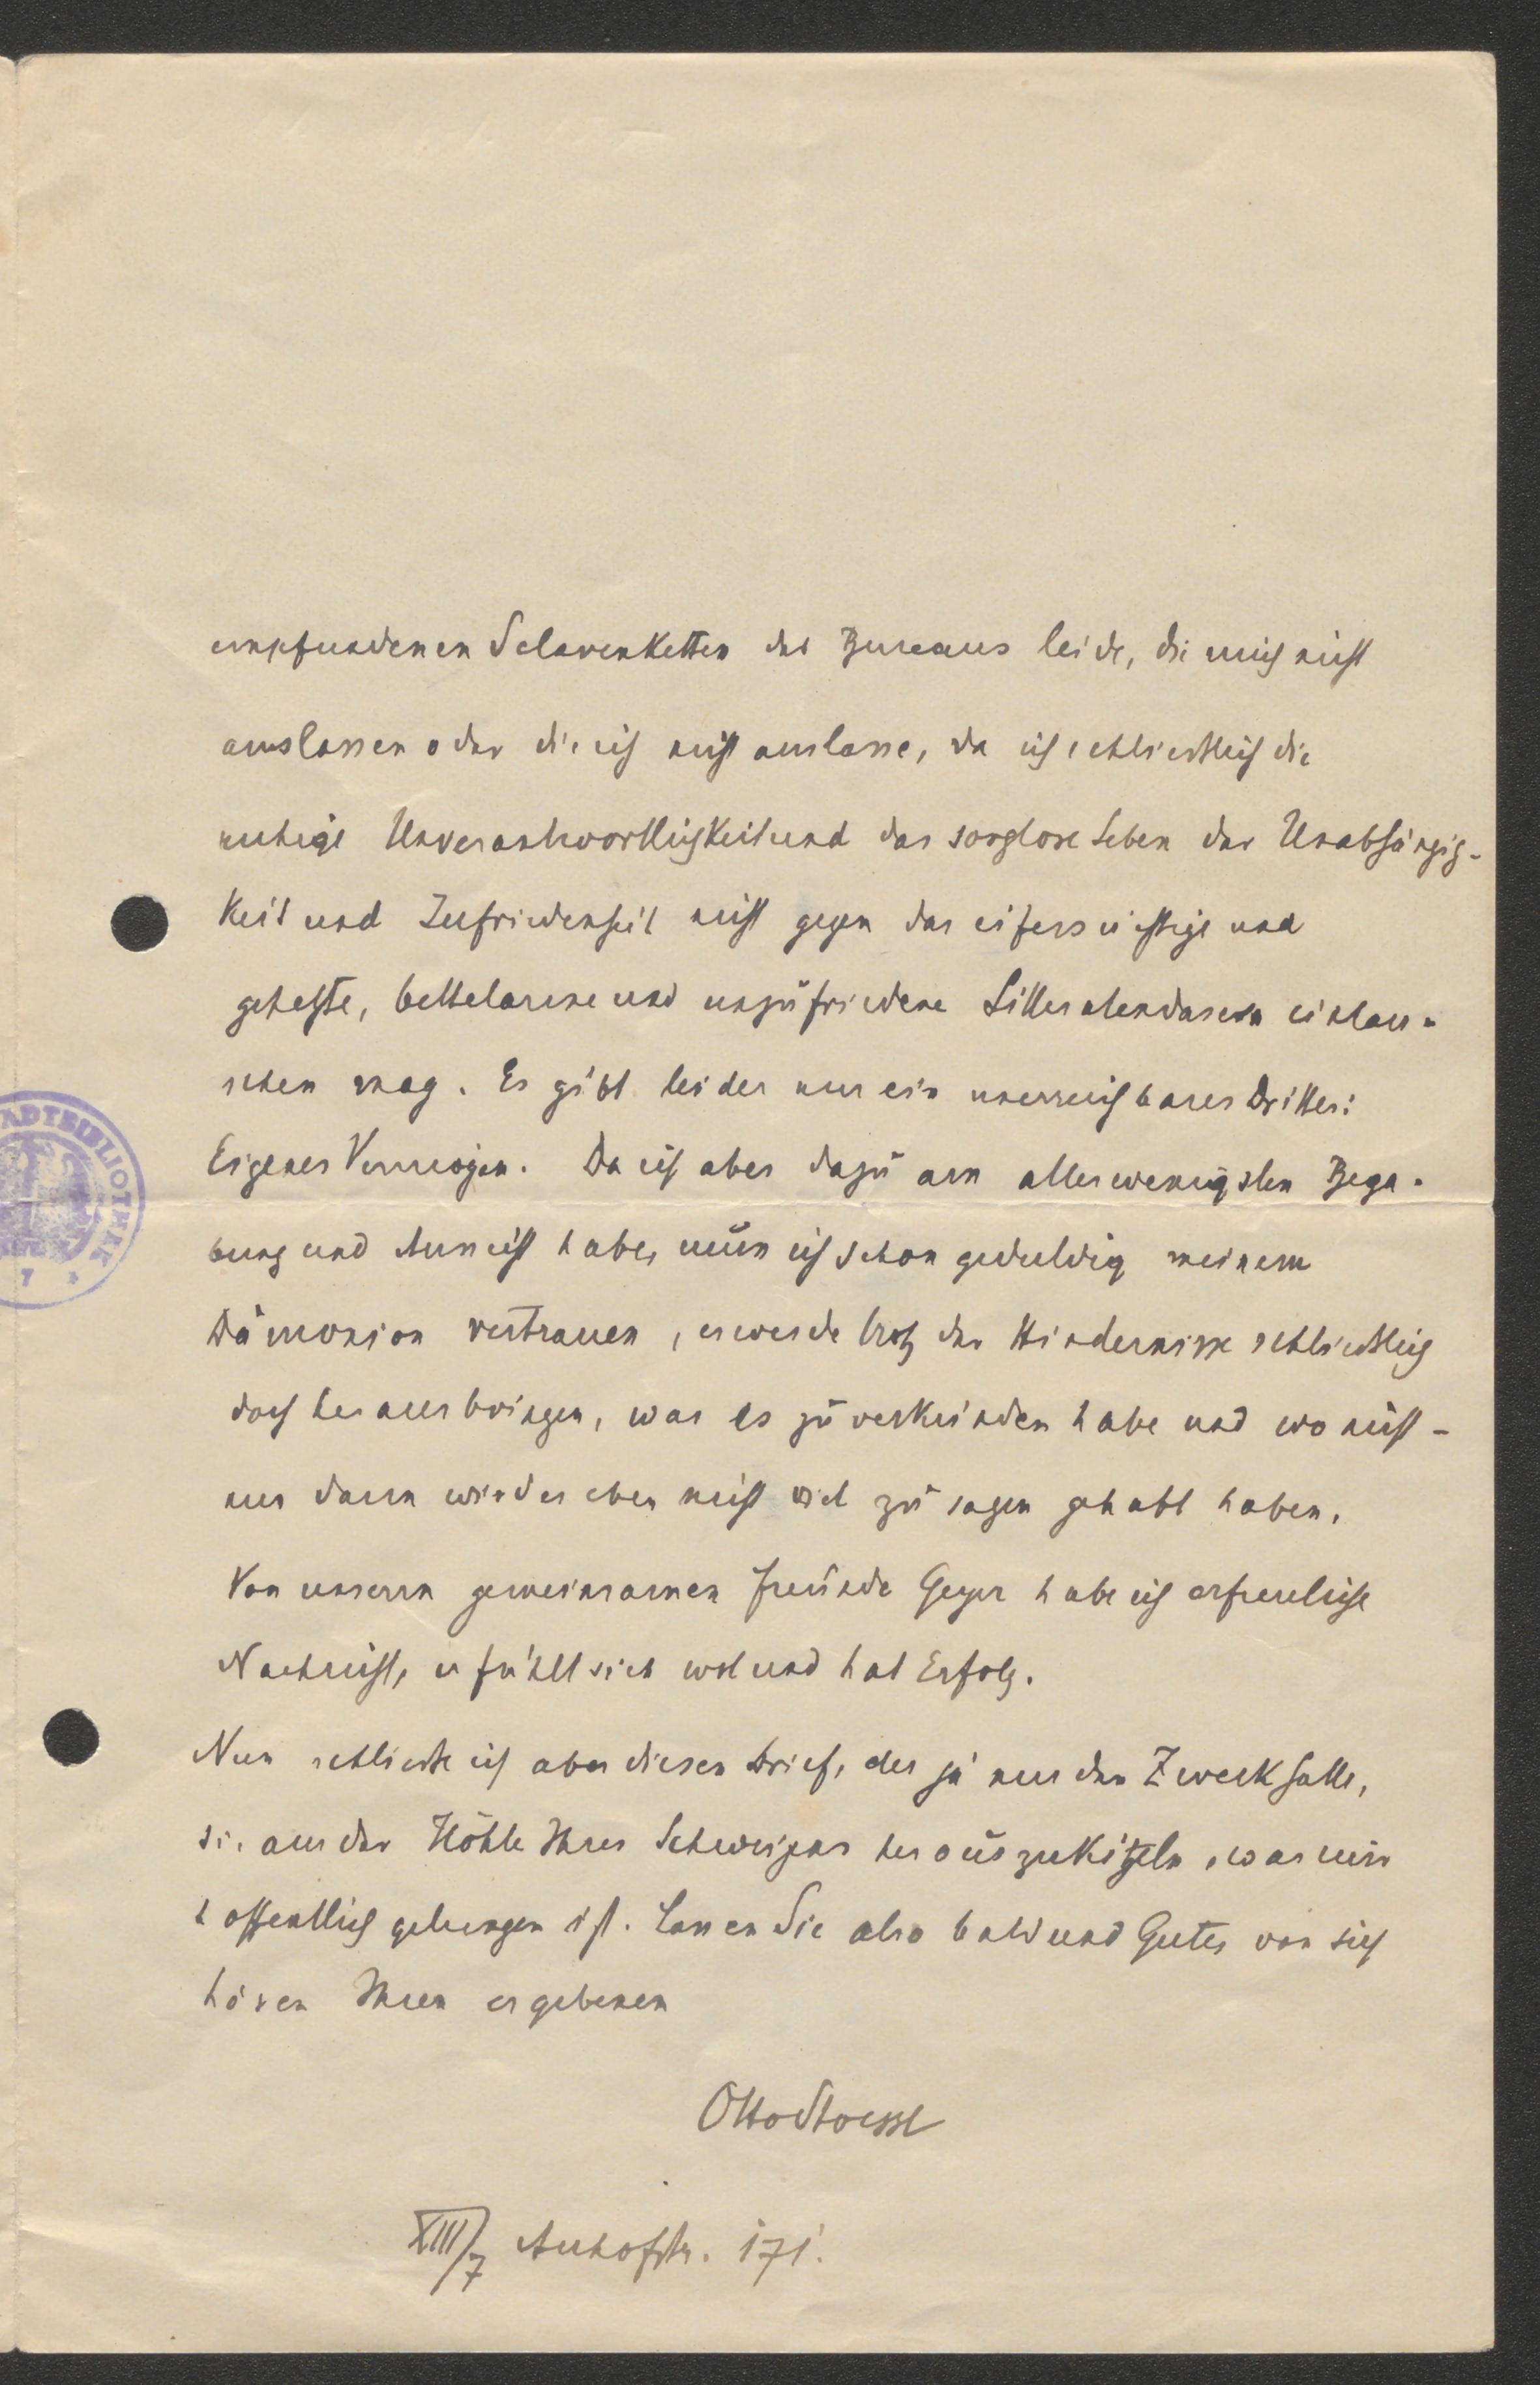 empfundenen Sclavenketten des Bureaus leide, die mich nicht
auslassen oder die ich nicht auslasse, da ich schliesslich die
ruhige Unverantwortlichkeit und das sorglose Leben der Unabhängig-
keit und Zufriedenheit nicht gegen das eifersüchtige und
gehetzte, bettelarme und unzufriedene Litteratendasein eintau-
schen mag. Es gibt leider nur ein unerreichbares Drittes:
Eigenes Vermögen. Da ich aber dazu am allerwenigsten Bega-
bung und Aussicht habe, muss ich schon geduldig meinem
Dämonion vertrauen, es werde trotz der Hindernisse schliesslich
doch herausbringen, was es zu verkünden habe und wo nicht -
nur dann wird es eben nicht viel zu sagen gehabt haben.
Von unserm gemeinsamen Freunde Geyer habe ich erfreuliche
Nachricht, er fühlt sich wol und hat Erfolg.
Nun schliesse ich aber diesen Brief, der ja nur den Zweck hatte,
Sie aus der Höhle Ihres Schweigens herauszukitzeln, was mir
hoffentlich gelungen ist. Lassen Sie also bald und Gutes von sich
hören Ihren ergebenen
Otto Stoessl
XIII/7 Auhofstr. 171.
STADTBIBLIOTHEK
7